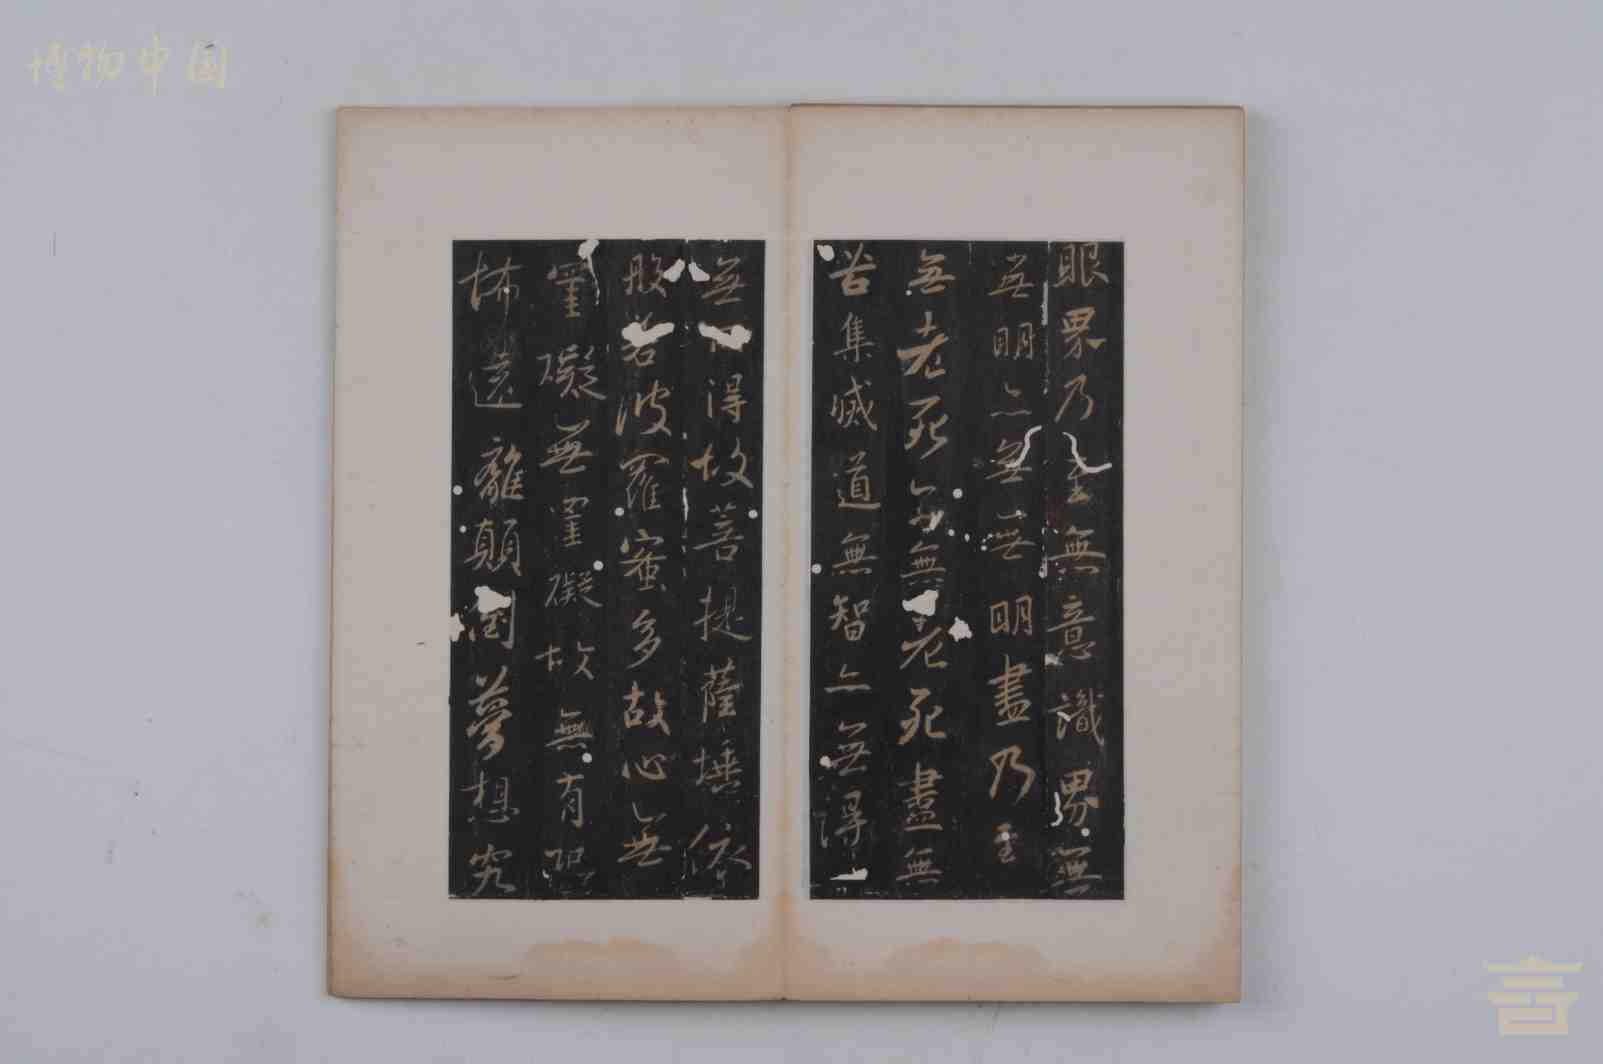 博物中国
眼界乃至無意識界無
無明亦無無明盡乃至
無老死亦無老死盡無
苦集滅道無智亦無得
無得故菩提薩埵依
般若波羅蜜多故心無
罣礙無罣礙故無有恐
怖遠離顛倒夢想究